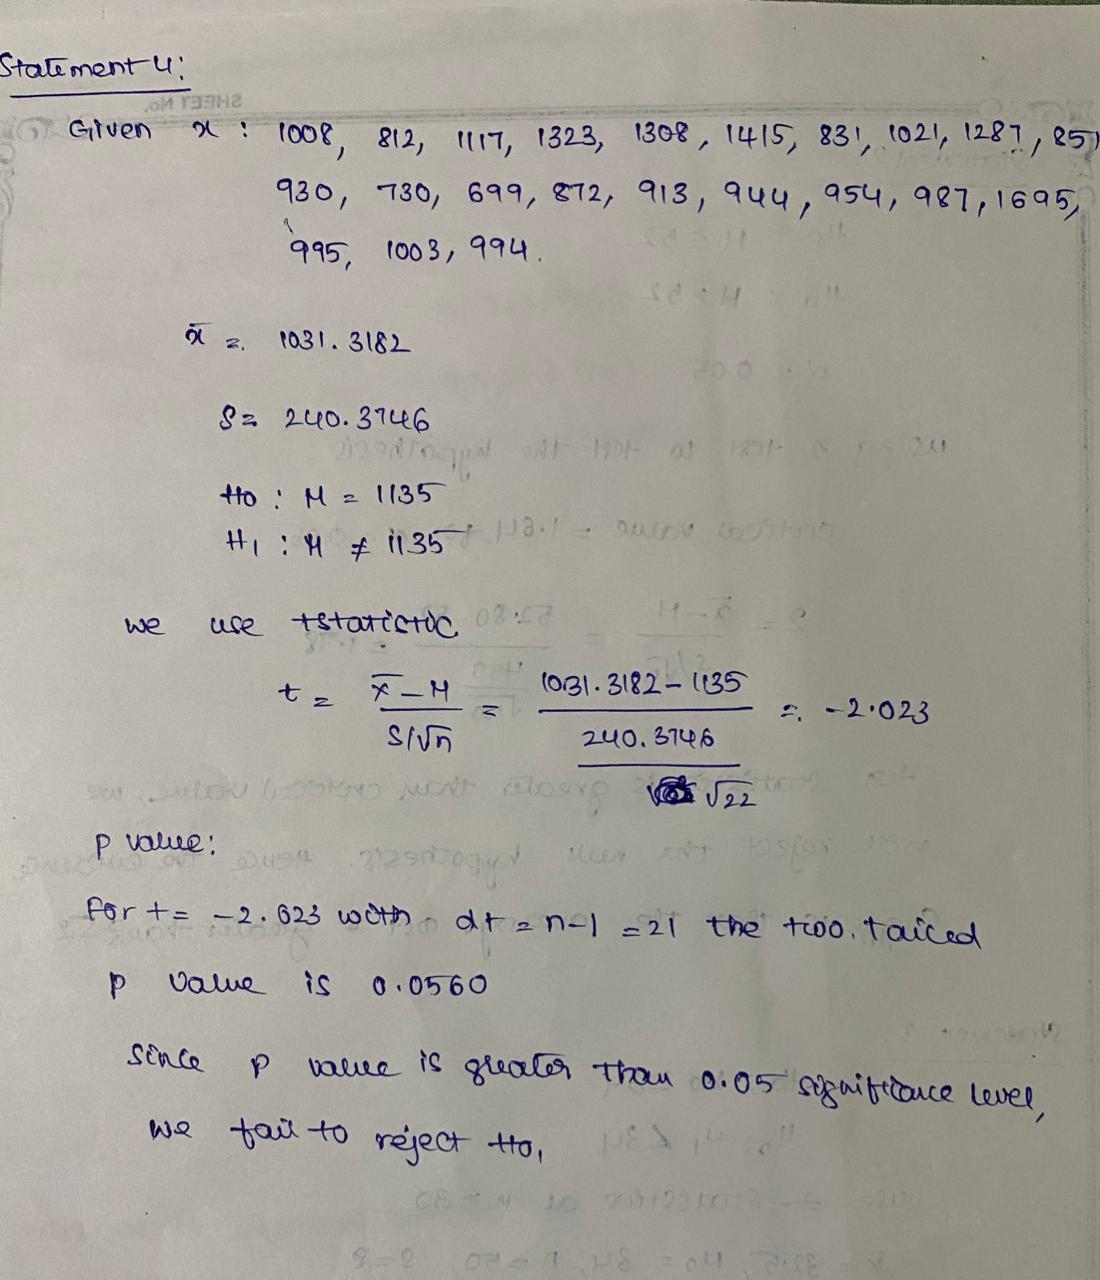 Statement 4:
SHEET No.
Given x : 1008, 812, 1117, 1323, 1308, 1415, 831, 1021, 1287, 851
930, 730, 699, 872, 913, 944, 954, 987, 1695,
995, 1003, 994.
x̄ = 1031.3182
S = 240.3746
H0 : M = 1135
H1 : M ≠ 1135
we use tstatistic
t = x̄ - M / S/√n = 1031.3182 - 1135 / 240.3746 / √22 = -2.023
P value:
for t = -2.023 with df = n-1 = 21 the two.tailed
p value is 0.0560
since p value is greater than 0.05 significance level,
we fail to reject H0,